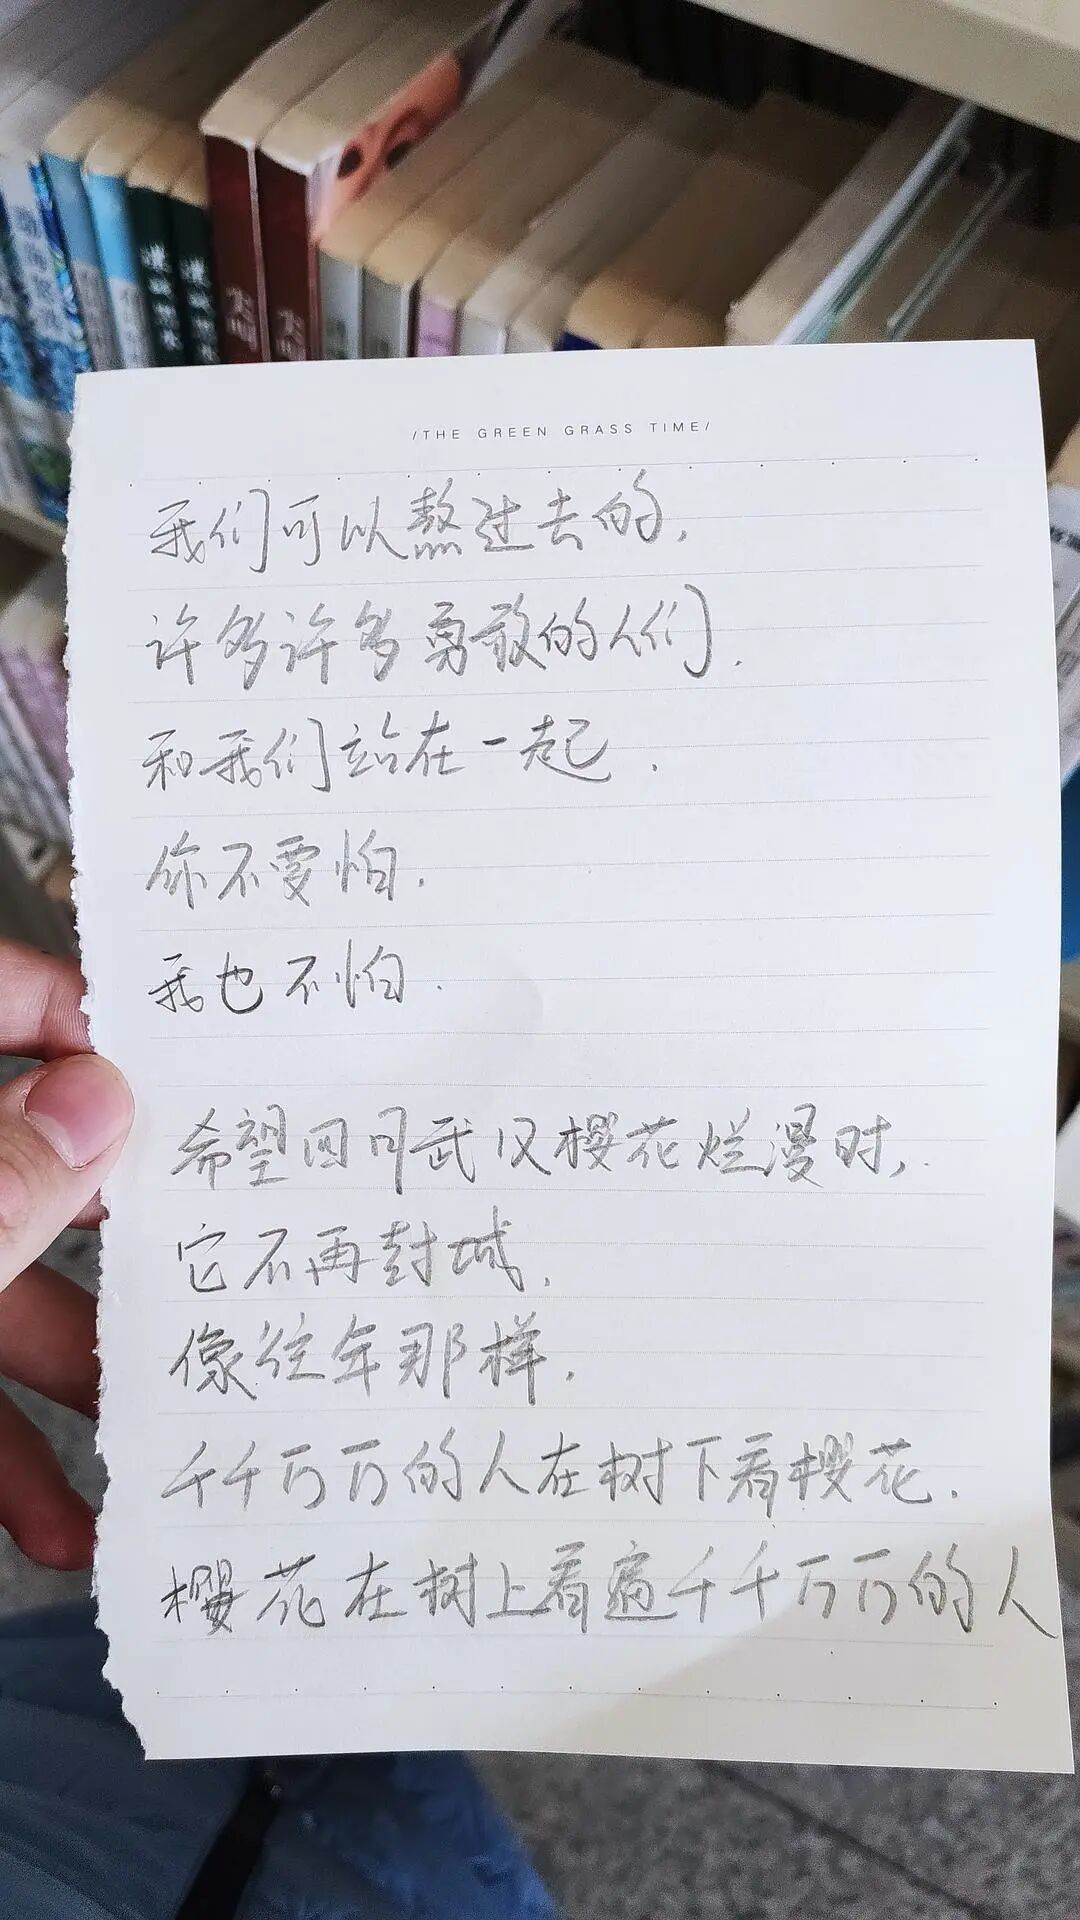 /THE GREEN GRASS TIME/
我们可以熬过去的,
许多许多勇敢的人们.
和我们站在一起.
你不要怕.
我也不怕.
希望四月武汉樱花烂漫时,
它不再封城.
像往年那样.
千千万万的人在树下看樱花.
樱花在树上看遍千千万万的人